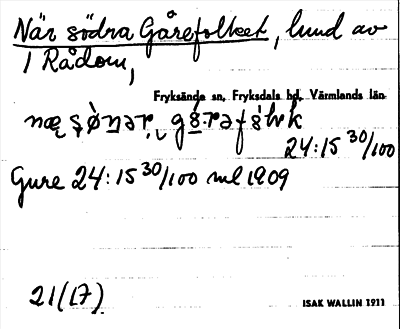 När södra Gårefolket, lund av
1 Rådom,
Fryksände sn, Fryksdals hd, Värmlands län
24:15 30/100
Gure 24:15 30/100 ml 1909
21(17)
ISAK WALLIN 1911